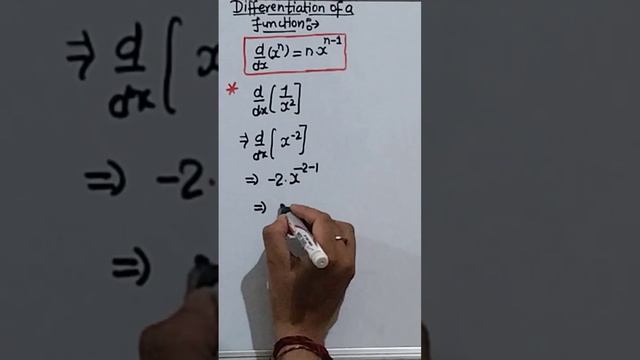 Differentiation of a
function:→
d/dx (xⁿ) = n·xⁿ⁻¹
* d/dx [1/x²]
⇒ d/dx [x⁻²]
⇒ -2·x⁻²⁻¹
⇒